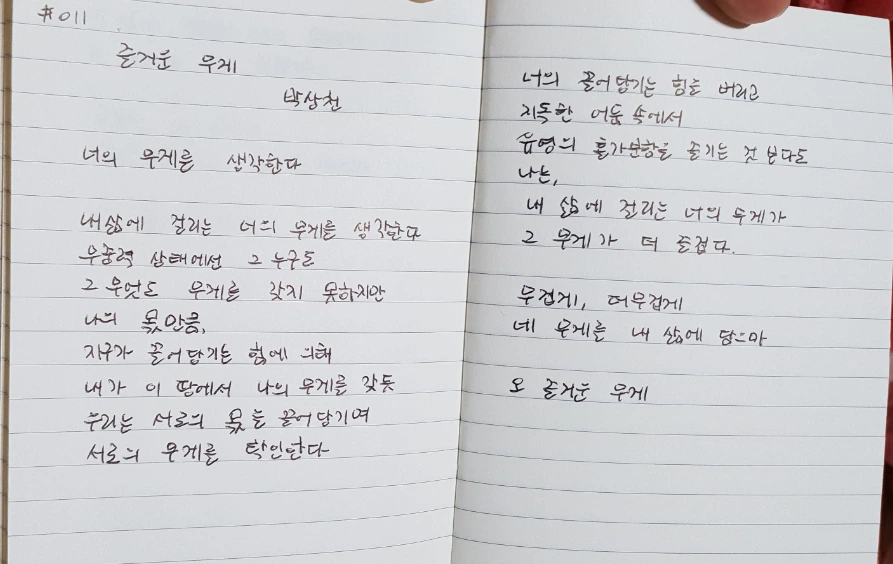 #011
즐거운 무게
박상천
너의 무게를 생각한다
내 삶에 걸리는 너의 무게를 생각한다
무중력 상태에선 그 누구도
그 무엇도 무게를 갖지 못하지만
나의 몫만큼,
지구가 끌어당기는 힘에 의해
내가 이 땅에서 나의 무게를 갖듯
우리는 서로의 몫을 끌어당기며
서로의 무게를 확인한다
너의 끌어당기는 힘을 버리고
지독한 어둠 속에서
유영의 홀가분함을 즐기는 것 보다도
나는,
내 삶에 걸리는 너의 무게가
그 무게가 더 즐겁다.
무겁게, 더 무겁게
네 무게를 내 삶에 담으마
오 즐거운 무게